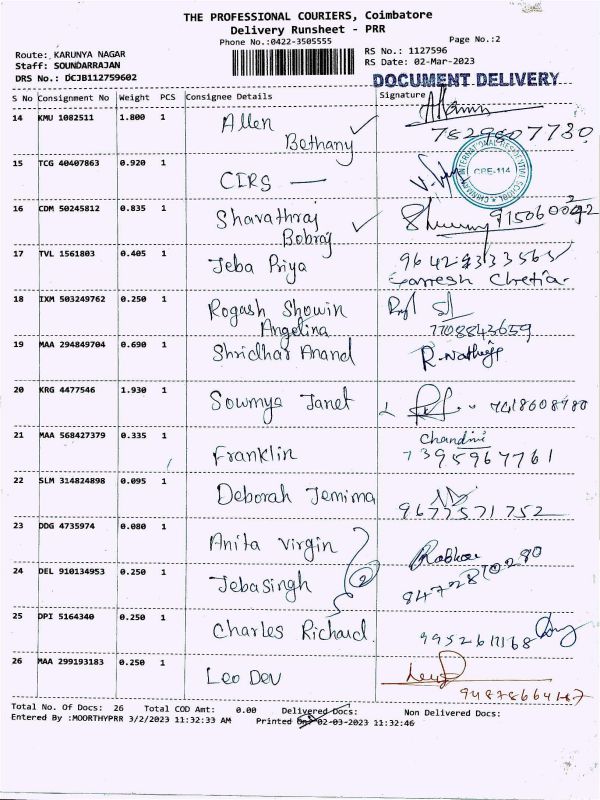 THE PROFESSIONAL COURIERS, Coimbatore
Delivery Runsheet - PRR
Phone No.:0422-3505555
Page No.:2
Route: KARUNYA NAGAR
RS No.: 1127596
Staff: SOUNDARRAJAN
RS Date: 02-Mar-2023
DRS No.: DCJB112759602
DOCUMENT DELIVERY
S No Consignment No Weight PCS Consignee Details Signature
14 KMU 1082511 1.800 1 Allen
Bethany
7829807730
15 TCG 40407863 0.920 1 CIRS
INTERNATIONAL RESIDENTIAL SCHOOL
CPE-114
16 CDM 50245812 0.835 1 Sharathraj
Bobraj
17 TVL 1561803 0.405 1 Jeba Priya
18 IXM 503249762 0.250 1 Rogash Showin
Angelina
7708843659
19 MAA 294849704 0.690 1 Shridhar Anand
20 KRG 4477546 1.930 1 Sowmya Janet
21 MAA 568427379 0.335 1 Franklin
Chandni
7395967761
22 SLM 314824898 0.095 1 Deborah Jemima
9677571752
23 DDG 4735974 0.080 1 Anita Virgin
24 DEL 910134953 0.250 1 Jebasingh 2
25 DPI 5164340 0.250 1 Charles Richard.
26 MAA 299193183 0.250 1 Leo Dev
Total No. Of Docs: 26 Total COD Amt: 0.00 Delivered Docs: Non Delivered Docs:
Entered By :MOORTHYPRR 3/2/2023 11:32:33 AM Printed On 02-03-2023 11:32:46